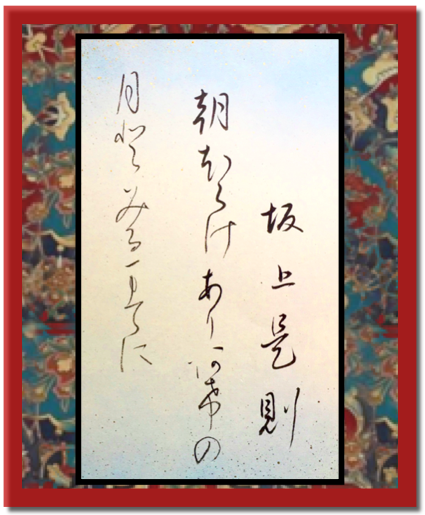 坂上是則
朝ほらけありあけの
月とみるまてに